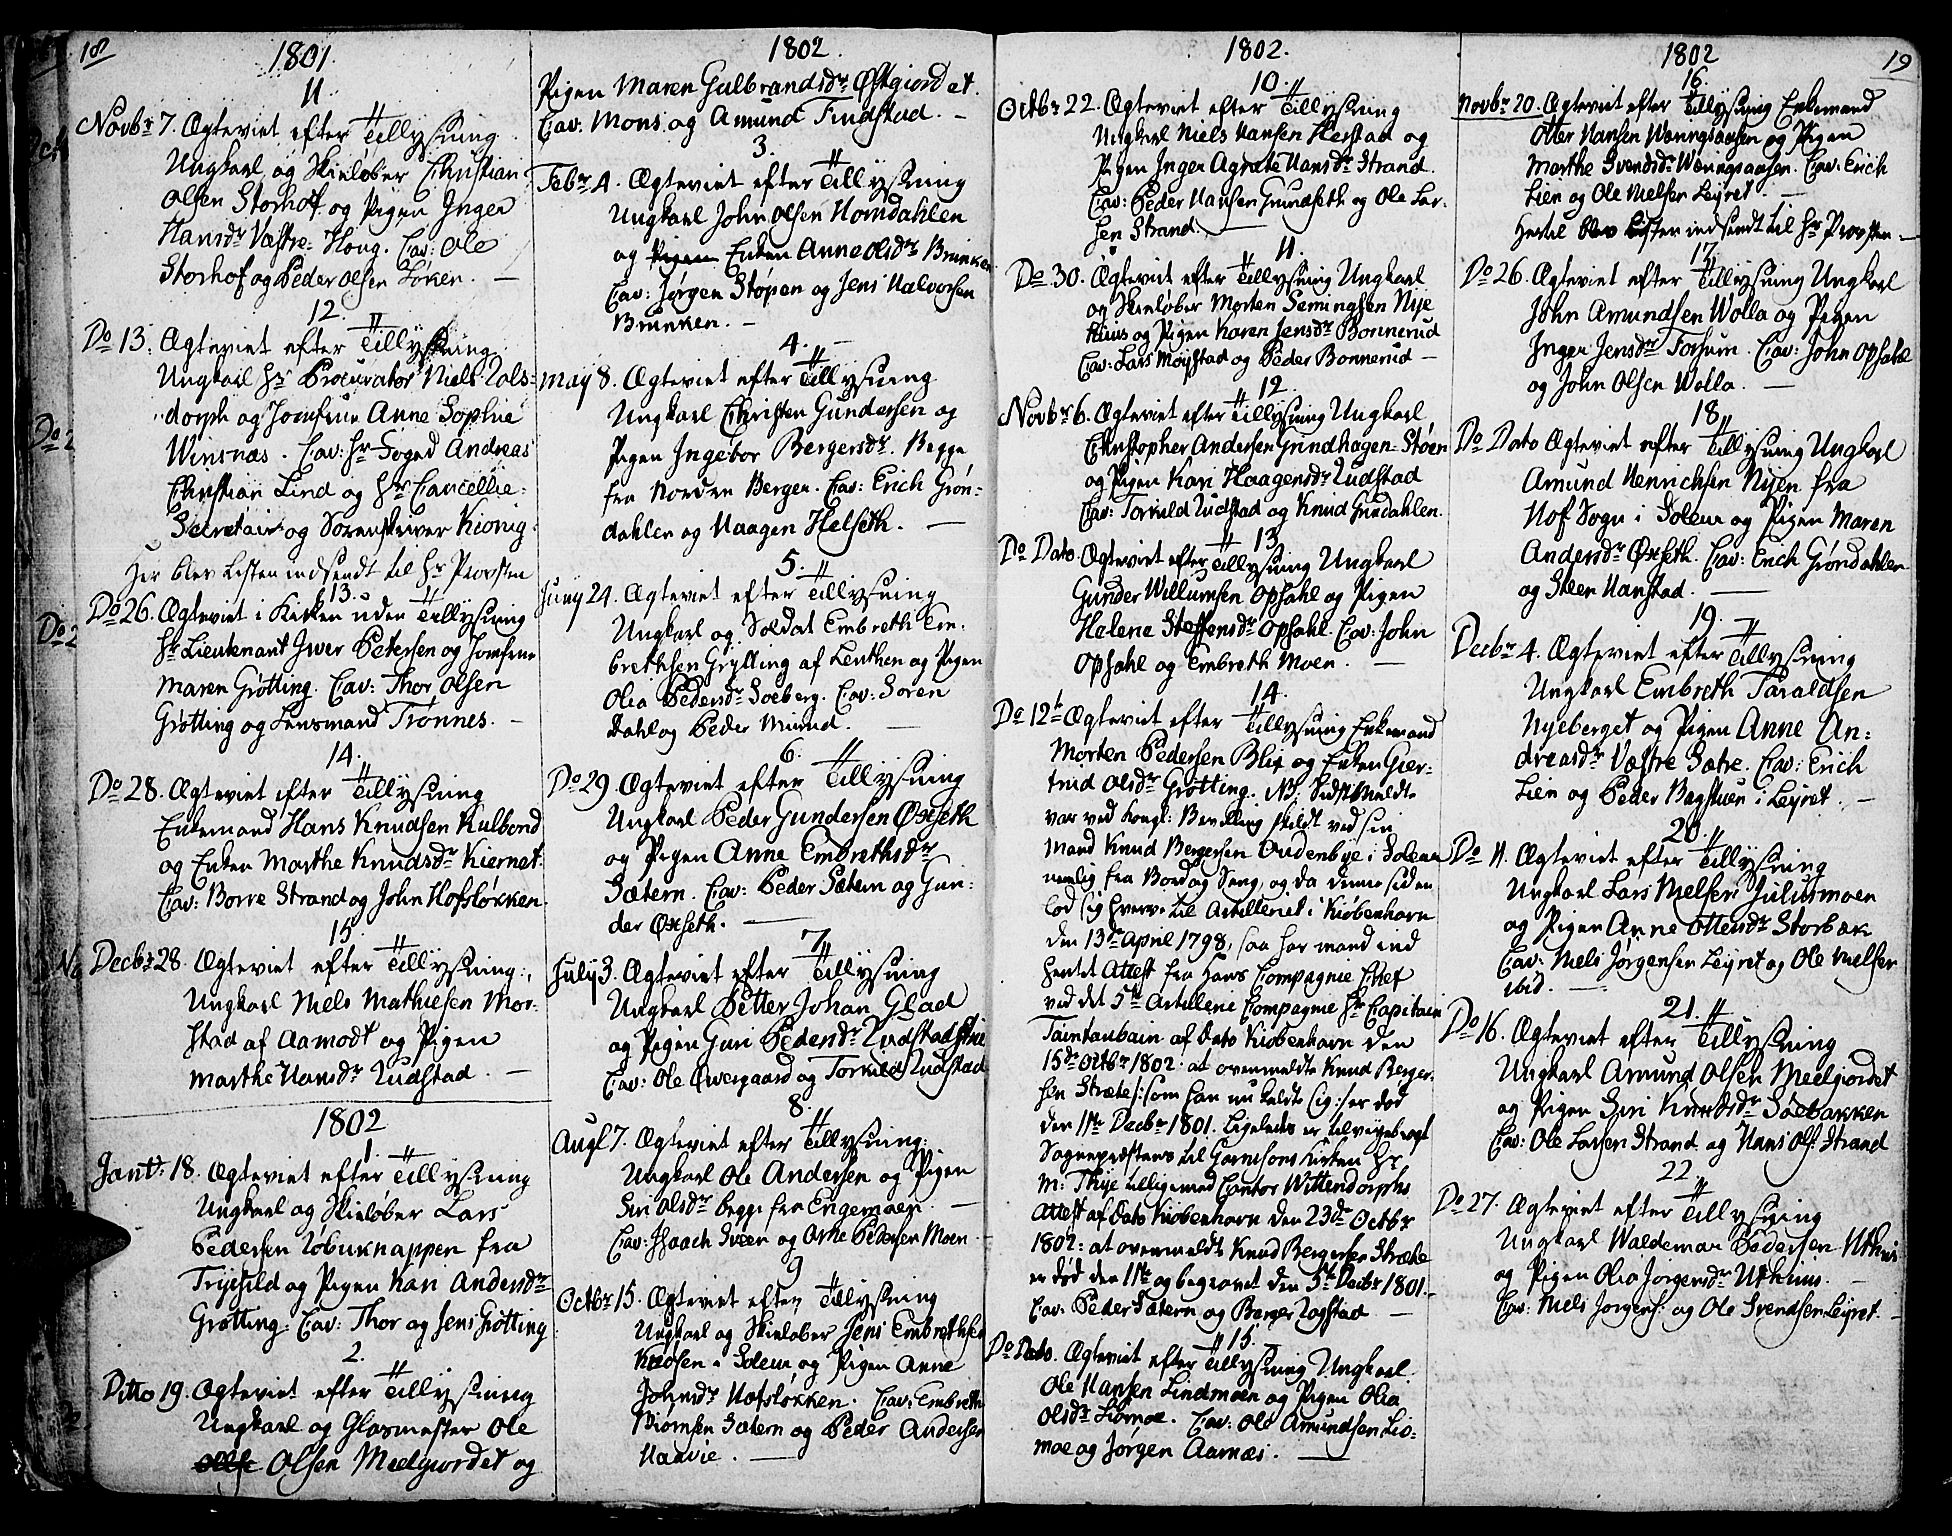 18
1801.
11.
Novbr 7. Ægteviet efter Tillysning
Ungkarl og Skieløber Christian
Olsen Storhof og Pigen Inger
Hansdr Væstre-Houg. Cav: Ole
Storhof og Peder Olsen Løken. —
12.
Do 13. Ægteviet efter Tillysning
Ungkarl Hr Procurator Niels Cols-
dorph og Jomfrue Anne Sophie
Winsnæs. Cav: Hr Foged Andreas
Christian Lind og Hr Cancellie-
Secretair og Sorenskriver Kionig.
Her blev Listen indsendt til Hr Provsten
13.
Do 26. Ægteviet i Kirken uden Tillysning
Hr Lieutenant Iwer Petersen og Jomfrue
Maren Grøtting. Cav: Thor Olsen
Grøtting og Lensmand Trønnes. —
14.
Do 28. Ægteviet efter Tillysning
Enkemand Hans Knudsen Kulbond
og Enken Marthe Knudsdr Kiernet.
Cav: Borre Strand og John Hofsløkken.
15.
Decbr 28. Ægteviet efter Tillysning:
Ungkarl Niels Mathiesen Mor-
stad af Aamodt og Pigen
Marthe Hansdr Rudstad. —
1802
1.
Janv: 18. Ægteviet efter Tillysning
Ungkarl og Skieløber Lars
Pedersen fra
Trysild og Pigen Kari Andersdr
Grøtting. Cav: Thor og Jens Grøtting
2.
Ditto 19. Ægteviet efter Tillysning
Ungkarl og Glasmester Ole
Olsen Meelgiordet og
1802.
Pigen Maren Gulbrandsdr Østgiordet.
Cav: Mons og Amund Tindstad. —
3.
Febr 4. Ægteviet efter Tillysning
Ungkarl John Olsen Homdahlen
og Pigen Enken Anne Olsdr Brunken
Cav: Jørgen Støpen og Jens Halvorsen
Brunken. —
4.
May 8. Ægteviet efter Tillysning
Ungkarl Christen Gundersen og
Pigen Ingebor Bergersdr. Begge
fra Nordre Bergen. Cav: Erich Grøn-
dahlen og Haagen Helseth. —
5.
Juny 24. Ægteviet efter Tillysning
Ungkarl og Soldat Embreth Em-
brethsen Grylling af Leuthen og Pigen
Olea Pedersdr Soeberg. Cav: Soren
Dahl og Peder Misund. —
6.
Do 29. Ægteviet efter Tillysning
Ungkarl Peder Gundersen Oxseth
og Pigen Anne Embrethsdr
Sætern. Cav: Peder Sætern og Gun-
der Oxseth. —
7.
July 3. Ægteviet efter Tillysning
Ungkarl Petter Johan Glad
og Pigen Guri Pedersdr
Cav: Ole Øvergaard og Torkild Rudstad
8.
Augl 7. Ægteviet efter Tillysning:
Ungkarl Ole Andersen og Pigen
Siri Olsdr begge fra Engemoen. —
Cav: Isaach Sveen og Arne Pedersen Moen
9
Octbr 15. Ægteviet efter Tillysning
Ungkarl og Skieløber Jens Embrethsen
i Solem og Pigen Anne
Johnsdr Hofsløkken. Cav: Embreth
Biornsen Sætern og Peder Andersen
Haavie. —
1802.
10
Octbr 22. Ægteviet efter Tillysning
Ungkarl Niels Hansen Hestad og
Pigen Inger Agrete Hansdr Strand.
Cav: Peder Hansen Grundseth og Ole Lar-
sen Strand. —
11.
Do 30. Ægteviet efter Tillysning Ungkarl
og Skieløber Morten Semingsen Nye
Huus og Pigen Karen Jensdr Bonnerud
Cav: Lars Moystad og Peder Bonnerud —
12.
Novbr 6. Ægteviet efter Tillysning Ungkarl
Christopher Andersen Grindhagen-Støen
og Pigen Kari Haagensdr Rudstad
Cav: Torkild Rudstad og Knud Grindahlen.
13.
Do Dato Ægteviet efter Tillysning Ungkarl
Gunder Willumsen Opsahl og Pigen
Helene Steffensdr Opsahl. Cav: John
Opsahl og Embreth Moen. —
14.
Do 12te Ægteviet efter Tillysning Enkemand
Morten Pedersen Blix og Enken Gier-
trud Olsdr Grøtting. NB. Sidstmeldte
var ved Kongl: Bevilling skildt ved sin
Mand Knud Bergersen Oudenbye i Solem
nemlig fra Bord og Seng, og da denne siden
lod sig hverve til Artilleriet i Kiøbenhavn
den 13de April 1798, saa har mand ind
hentet Attest fra hans Compagnie Chef
ved det 5te Artillerie Compagnie Hr Capitain
Taintaubain af Dato Kiøbenhavn den
15de Octbr 1802. at ovenmeldte Knud Berger-
sen Stræte /: som han nu kaldte sig :/ er død
den 11te Decbr 1801. Ligeledes er tilveiebragt
Sognepræstens til Garnisons Kirken Hr
M: Thye tilligemed Cantor Wittendorphs
Attest af Dato Kiøbenhavn den 23de Octbr
1802: at ovenmeldte Knud Bergersen Stræte
er død den 11te og begravet den 15de Decbr 1801. —
Cav: Peder Sætern og Berger Rogstad —
15.
Do Dato. Ægteviet efter Tillysning Ungkarl
Ole Hansen Lindmoen og Pigen Olea
Olsdr Liomoe. Cav: Ole Amundsen Lio-
moe og Jørgen Aarnæs. —
1802
19
16.
Novbr 20. Ægteviet efter Tillysning Enkemand
Otter Hansen Wæringsaasen og Pigen
Marthe Svendsdr Wæringsaasen. Cav: Erich
Lien og Ole Nielsen Leyret —
Hertil blev Listen indsendt til Hr Provsten —
17.
Do 26. Ægteviet efter Tillysning Ungkarl
John Amundsen Wolla og Pigen
Inger Jensdr Forsum. Cav: John Opsahl
og John Olsen Wolla. —
18.
Do Dato Ægteviet efter Tillysning Ungkarl
Amund Henrichsen Nyen fra
Hof Sogn i Solem og Pigen Maren
Andersdr Oxseth. Cav: Erich Grøndahlen
og Steen Hanstad. —
19.
Decbr 4. Ægteviet efter Tillysning
Ungkarl Embreth Taraldsen
Nyeberget og Pigen Anne An-
dreasdr Væstre Sætre. Cav: Erich
Lien og Peder Bagstuen i Leyret. —
20.
Do 11. Ægteviet efter Tillysning
Ungkarl Lars Nielsen Juliusmoen
og Pigen Anne Ottersdr Storbæk
Cav: Niels Jørgensen Leyret og Ole Nielsen
ibid. —
21.
Do 16. Ægteviet efter Tillysning
Ungkarl Amund Olsen Meelgiordet
og Pigen Siri Knudsdr Søebakken
Cav: Ole Larsen Strand og Hans Ols: Strand
22.
Do 27. Ægteviet efter Tillysning
Ungkarl Waldemar Pedersen Uthuus
og Pigen Olea Jørgensdr Uthuus. —
Cav: Niels Jørgens: og Ole Svendsen Leyret. —